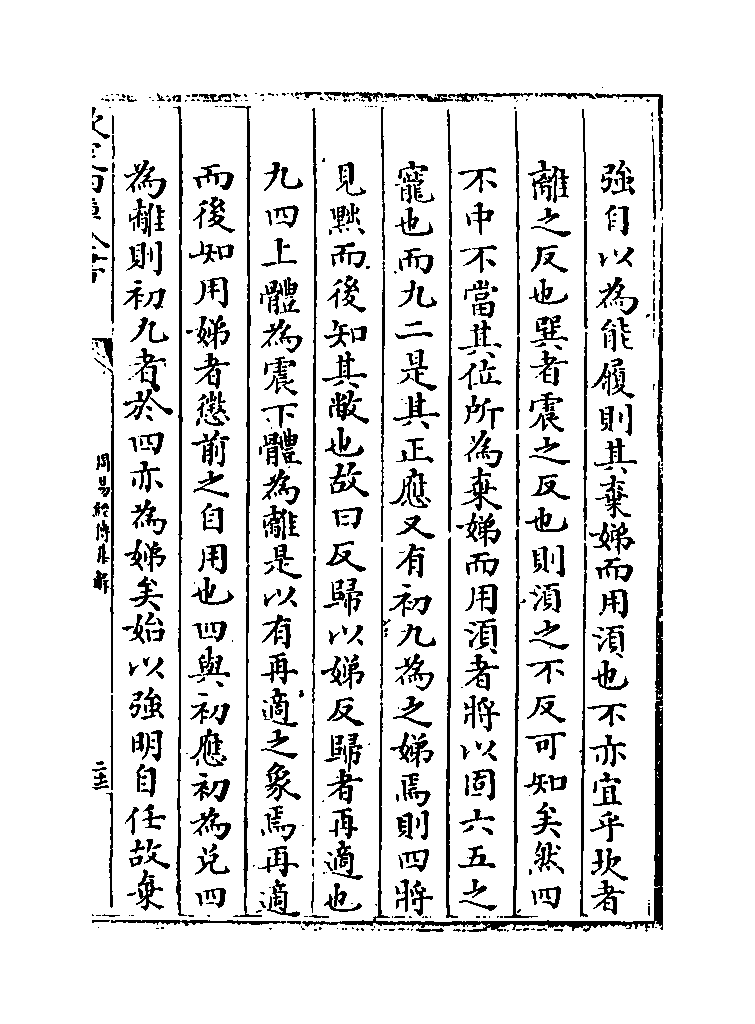 強自以為能履則其棄娣而用須也不亦宜乎坎者
離之反也巽者震之反也則須之不反可知矣然四
不中不當其位所為棄娣而用須者將以固六五之
寵也而九二是其正應又有初九為之娣焉則四將
見黜而後知其敝也故曰反歸以娣反歸者再適也
九四上體為震下體為離是以有再適之象焉再適
而後知用娣者懲前之自用也四與初應初為兌四
為離則初九者於四亦為娣矣始以強明自任故棄
周易經傳集解